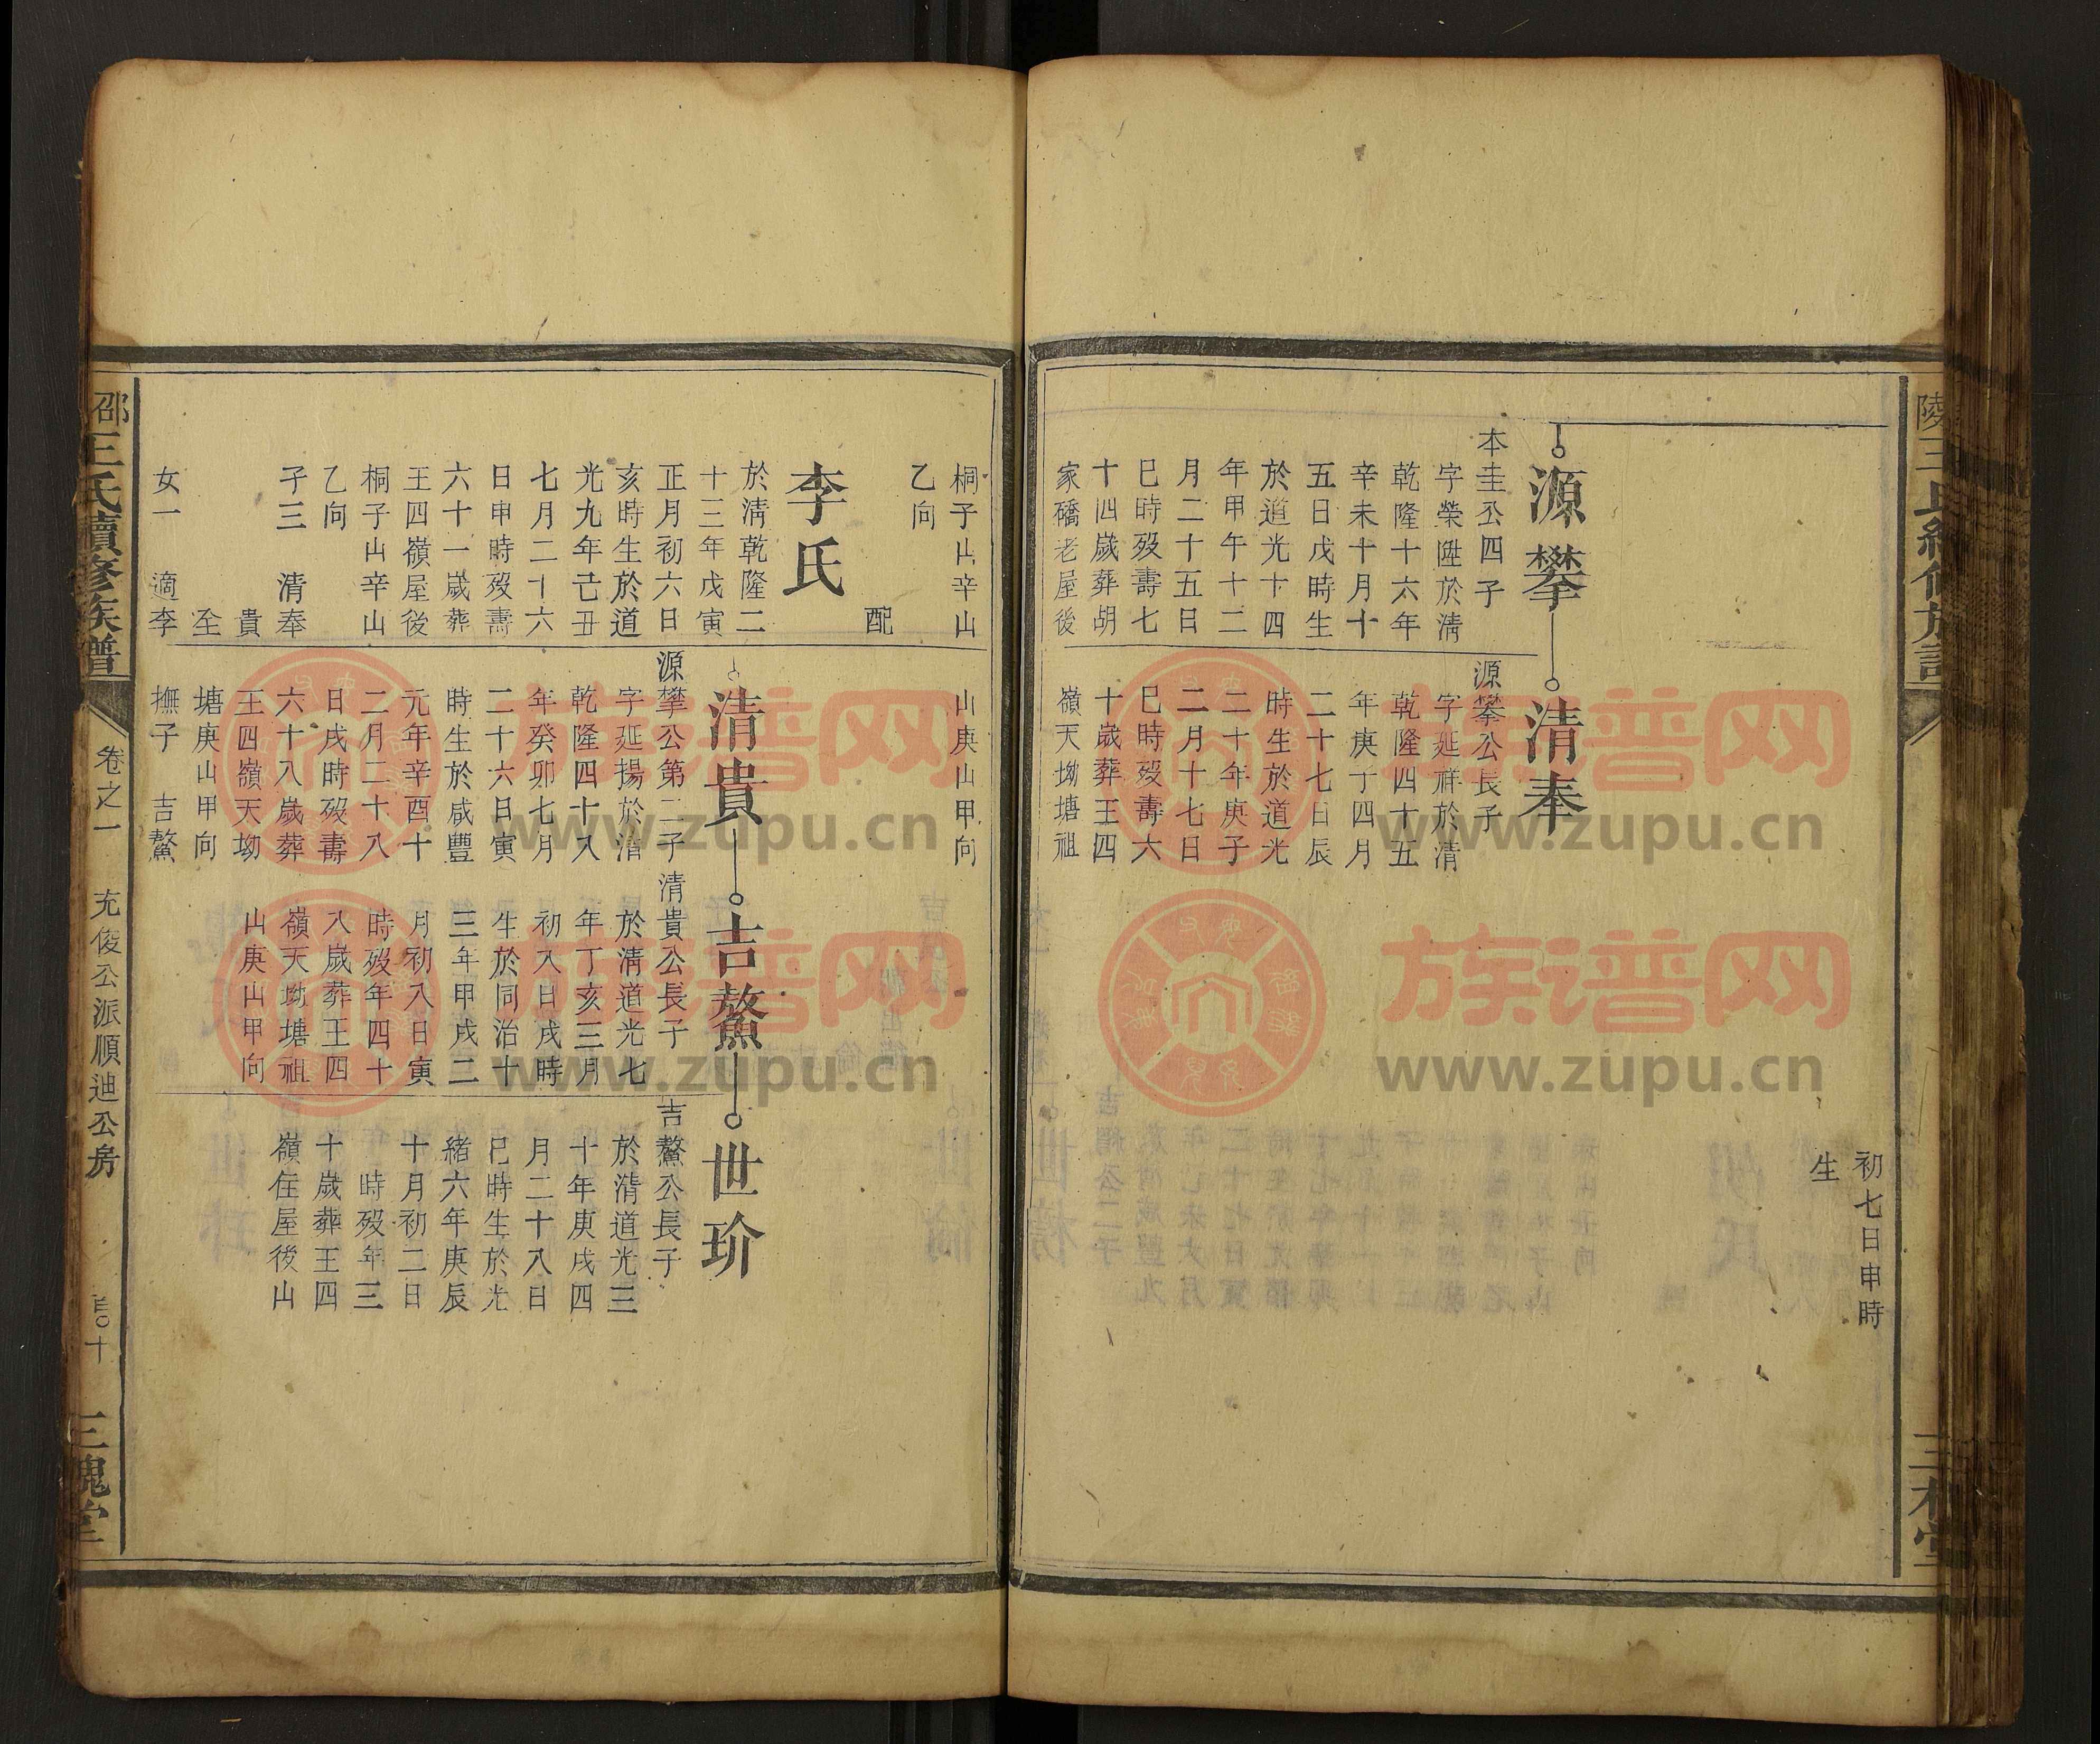 初七日申時
生
源攀
本圭公四子
字榮陞於淸
乾隆十六年
辛未十月十
五日戊時生
於道光十四
年甲午十二
月二十五日
巳時歿壽七
十四歲葬胡
家礄老屋後
清奉
源攀公長子
字延祥於清
乾隆四十五
年庚子四月
二十七日辰
時生於道光
二十年庚子
二月十七日
巳時歿壽六
十歲葬王四
嶺天坳塘祖
桐子山辛山
乙向
配
李氏
於淸乾隆二
十三年戊寅
正月初六日
亥時生於道
光九年己丑
七月二十六
日申時歿壽
六十一歲葬
王四嶺屋後
桐子山辛山
乙向
子三 清奉
貴
全
女一 適李
山庚山甲向
清貴
源攀公第二子
字延揚於清
乾隆四十八
年癸卯七月
二十六日寅
時生於咸豐
元年辛酉十
二月二十八
日戌時歿壽
六十八歲葬
王四嶺天坳
塘庚山甲向
撫子 吉鰲
吉鰲
清貴公長子
於淸道光七
年丁亥三月
初八日戌時
生於同治十
三年甲戌二
月初八日寅
時歿年四十
八歲葬王四
嶺天坳塘祖
山庚山甲向
世玠
吉鰲公長子
於淸道光三
十年庚戌四
月二十八日
巳時生於光
緒六年庚辰
十月初二日
時歿年三
十歲葬王四
嶺住屋後山
邵王氏續修族譜
卷之一
充俊公派順迪公房
三槐堂
www.zupu.cn
族谱网
www.zupu.cn
族谱网
www.zupu.cn
族谱网
www.zupu.cn
族谱网